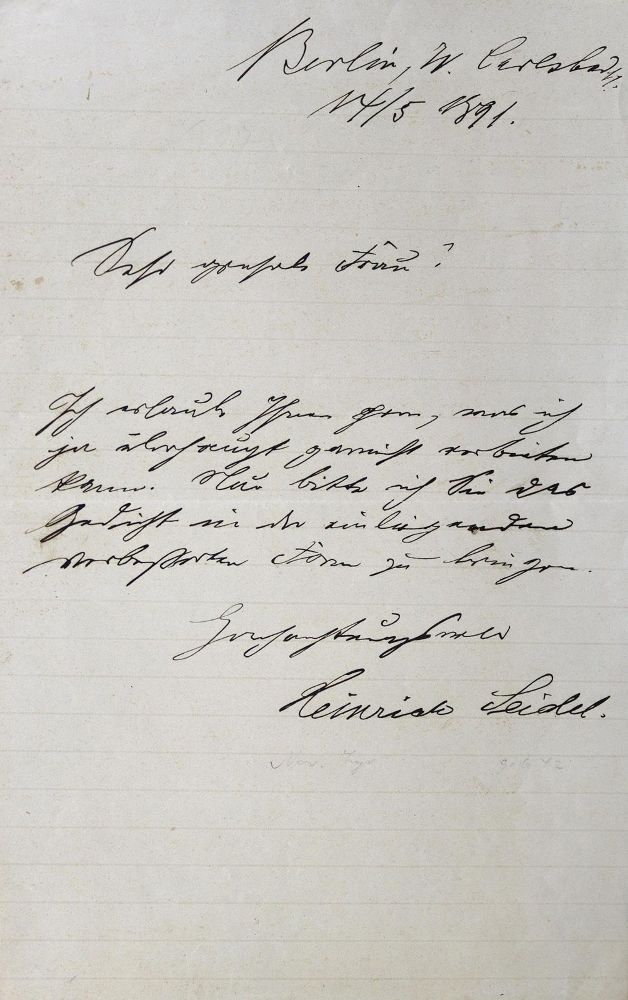 Berlin, W. Carlsbad 11.
14/5 1891.
Sehr geehrte Frau!
Ich erlaube Ihnen gern, was ich
ja überhaupt garnicht verbieten
kann. Nur bitte ich Sie das
Gedicht in der einliegenden
verbesserten Form zu bringen.
Hochachtungsvoll
Heinrich Seidel.